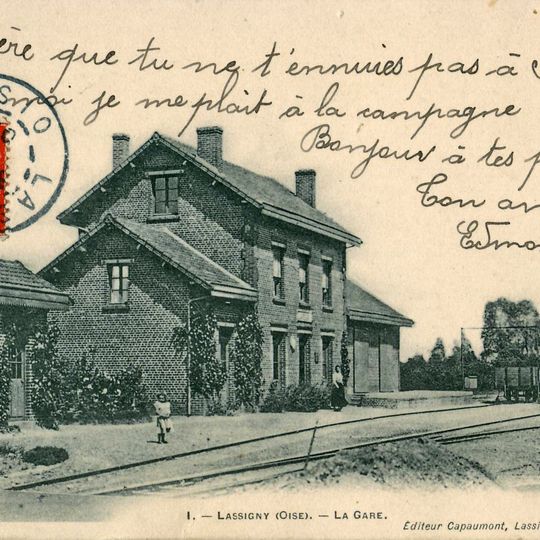 ère que tu ne t'ennuies pas à
moi je me plaît à la campagne
Bonjour à tes
Ton
Edmo
O - LA
1. — LASSIGNY (OISE). — LA GARE.
Éditeur Capaumont, Lassi